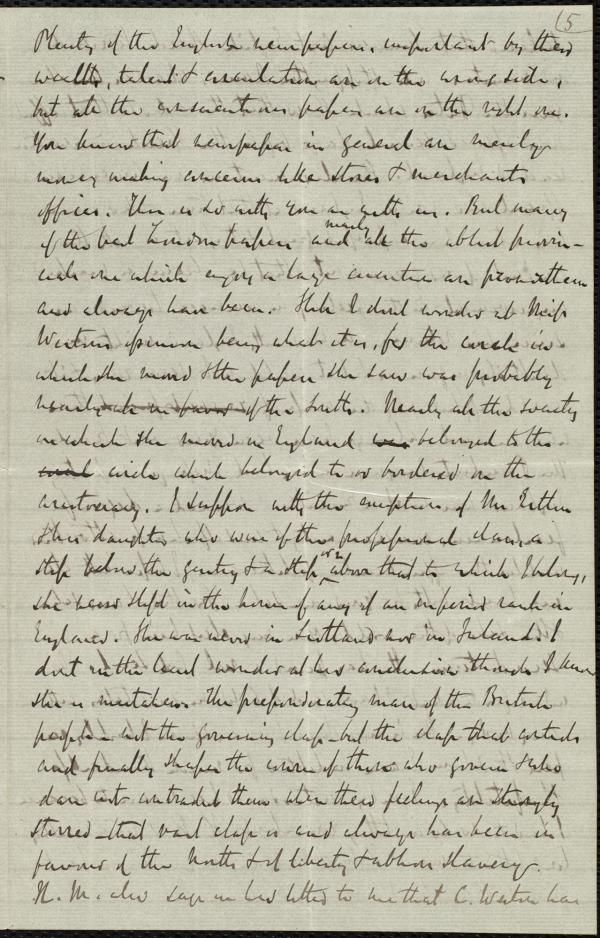 (5
Plenty of the English newspapers, important by their
wealth, talent & circulation are on the wrong side,
but all the conscientious papers are on the right one.
You know that newspapers in general are merely
money making concerns like stores & merchants
offices. This is so with you as with us. But many
of the best London papers and nearly all the ablest provin-
cials one which enjoy a large circulation are from them
and always have been. Still I dont wonder at Miss
Weston's opinion being what it is, for the circle in
which she moved & the papers she saw was probably
nearly all in favor of the South. Nearly all the society
in which she moved in England was belonged to the
circle which belonged to or bordered on the
aristocracy. I suppose with the exception of Mrs Estlin
& her daughter who were of the professional class, a
step below the gentry & a step or two above that to which I belong,
she never slept in the house of any of an inferior rank in
England. She was never in Scotland nor in Ireland. I
dont in the least wonder at her conclusion though I know
she is mistaken. The preponderating mass of the British
people - not the governing class - but the class that controls
and finally shapes the course of those who govern & who
dare not contradict them when their feelings are strongly
stirred - that vast class is and always has been in
favour of the North & of liberty & abhors slavery.
H. M. also says in her letter to me that C. Weston has